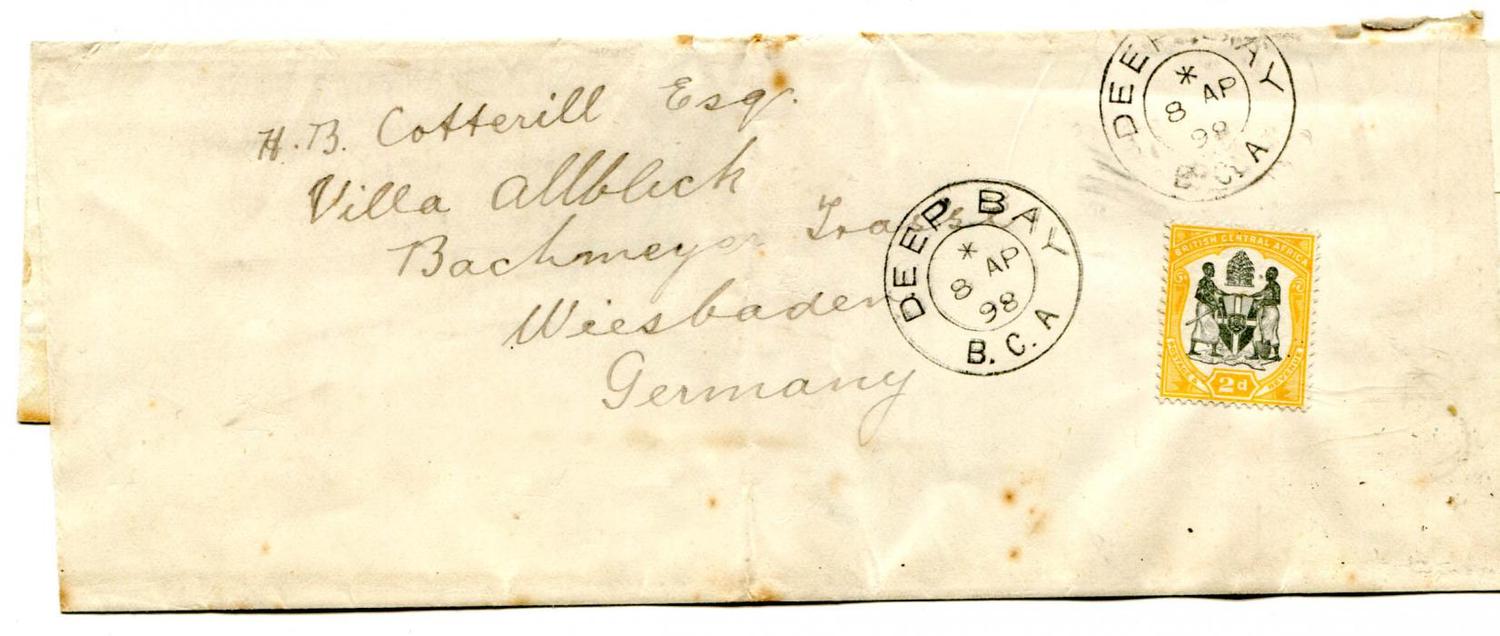 H. B. Cotterill Esq.
Villa Allblick
Bachmeyer
Wiesbaden
Germany
DEEP BAY
*
8 AP
98
B.C.A
DEEP BAY
*
8 AP
98
B.C.A
BRITISH CENTRAL AFRICA
POSTAGE & REVENUE
2d